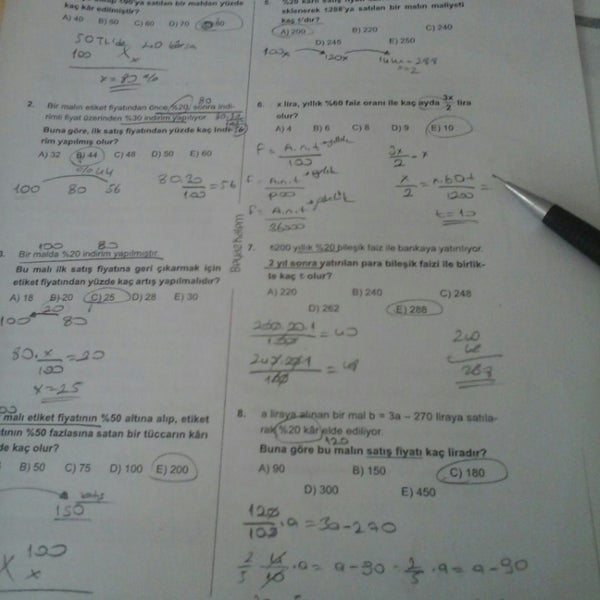 kaç kâr edilmiştir?
A) 40 B) 50 C) 60 D) 70
50 TL'lik
100
x = 80 %
2. Bir malın etiket fiyatından önce %20, sonra indi-
rimli fiyat üzerinden %30 indirim yapılıyor.
Buna göre, ilk satış fiyatından yüzde kaç indi-
rim yapılmış olur?
A) 32 B) 44 C) 48 D) 50 E) 60
%44
100 80 56
= 56
100 80
3. Bir malda %20 indirim yapılmıştır.
Bu malı ilk satış fiyatına geri çıkarmak için
etiket fiyatından yüzde kaç artış yapılmalıdır?
A) 18 B) 20 C) 25 D) 28 E) 30
20
100 80
80. x/100 = 20
x = 25
malı etiket fiyatının %50 altına alıp, etiket
fiyatının %50 fazlasına satan bir tüccarın kârı
kaç olur?
B) 50 C) 75 D) 100 E) 200
satış
150
100
x
5.
eklenerek t288'ya satılan bir malın maliyeti
kaç t'dir?
A) 200 B) 220 C) 240
D) 245 E) 250
100x 120x
x=2
6. x lira, yıllık %60 faiz oranı ile kaç ayda 3x/2 lira
olur?
A) 4 B) 6 C) 8 D) 9 E) 10
F = A.n.t/100 yıllık
F = A.n.t aylık
F = A.n.t/36000 günlük
3x/2 - x
x/2 = x.60.t/1200 =
t = 10
7. t200 yıllık %20 bileşik faiz ile bankaya yatırılıyor.
2 yıl sonra yatırılan para bileşik faizi ile birlik-
te kaç t olur?
A) 220 B) 240 C) 248
D) 262 E) 288
200.20.1/100 = 40
240.20.1/100 = 48
240
48
288
8. a liraya alınan bir mal b = 3a – 270 liraya satıla-
rak %20 kâr elde ediliyor.
120
Buna göre bu malın satış fiyatı kaç liradır?
A) 90 B) 150 C) 180
D) 300 E) 450
120/100 .a = 3a - 270
.a = a - 90 = 2/5 .a = a - 90